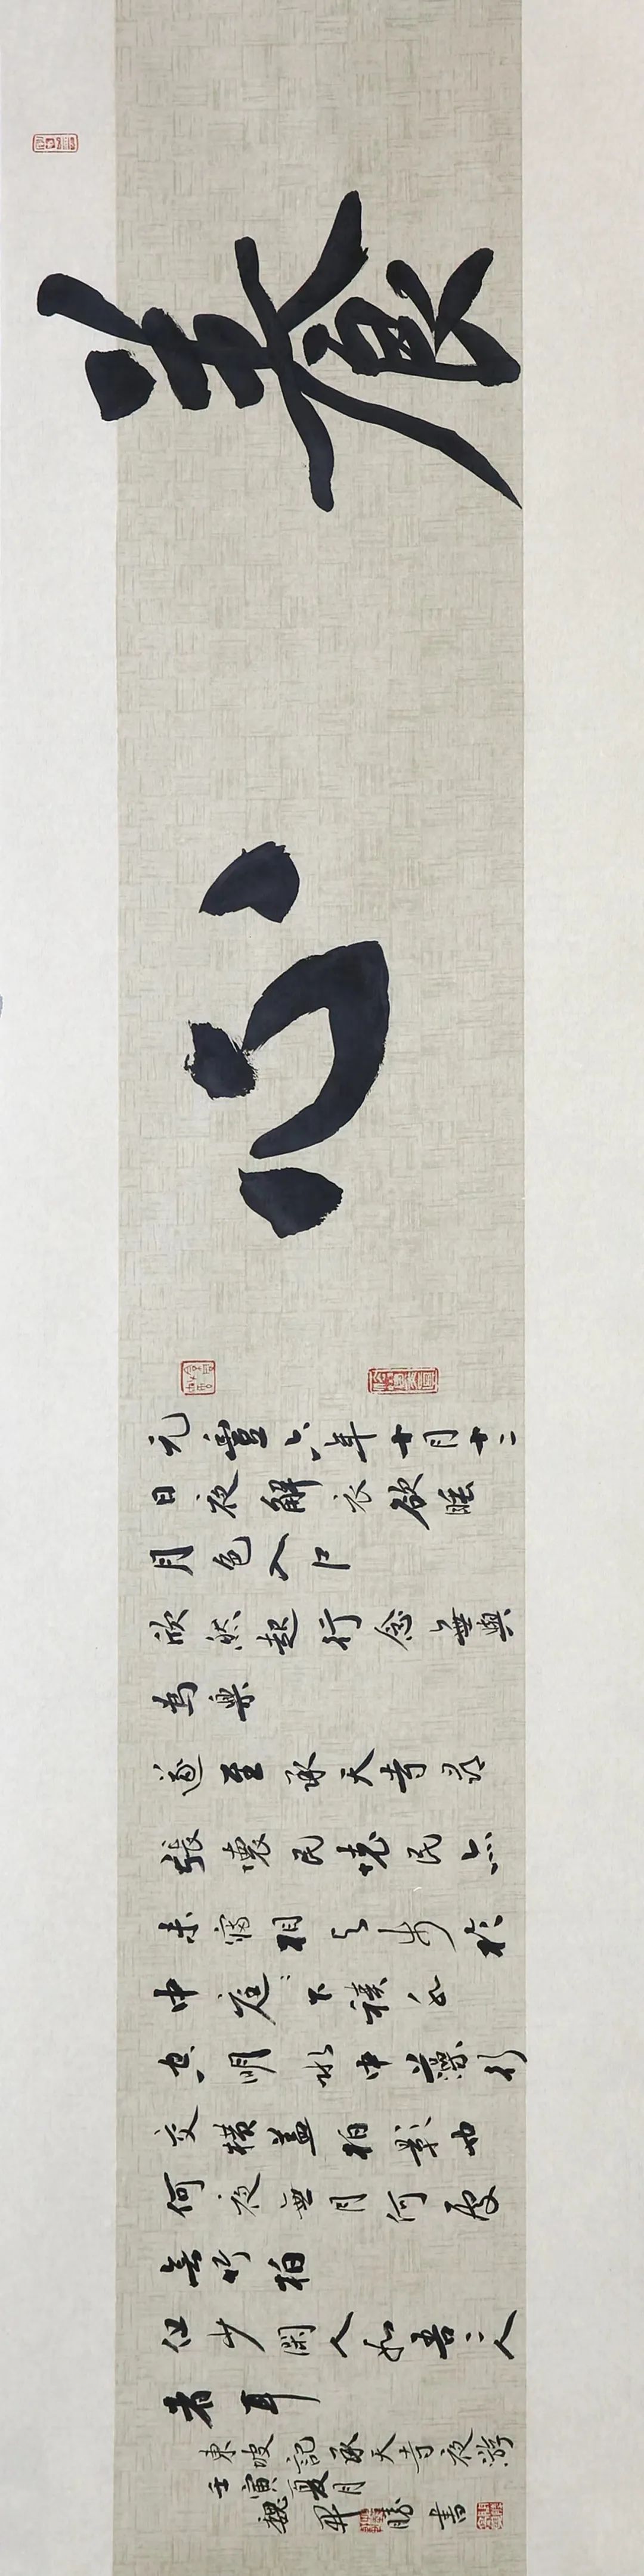 養心
元豐六年十月十二
日夜解衣欲睡
月色入户
欣然起行念無與
為樂
遂至承天寺尋
張懷民懷民亦
未寢相與步於
中庭〻下積水
空明水中藻荇
交橫蓋柏影也
何夜無月何處
無竹柏
但少閑人如吾二人
者耳
東坡記承天寺夜游
壬寅夏月
魏勝書